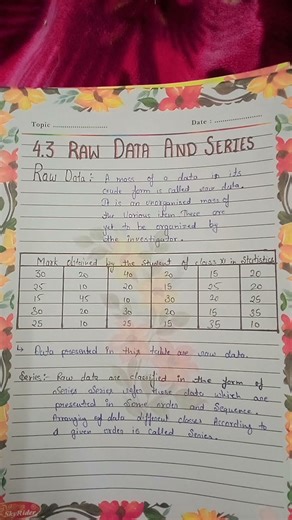 Topic ........................ Date : ........................
4.3 RAW DATA AND SERIES
Raw Data:- A mass of a data in its
crude form is called raw data.
It is an unorganised mass of
the various item. There are
yet to be organized by
the investigator.
Mark obtained by the student of class XI in Statistics
30 20 40 20 15 20
25 10 20 15 25 20
15 45 10 30 20 25
30 20 30 20 15 35
25 10 25 15 35 10
↳ Data presented In this table are raw data.
Series:- Raw data are classified in the form of
Series. Series refer those data which are
presented in some order and sequence.
Arranging of data different classes According to
a given order is called series.
SkyRider